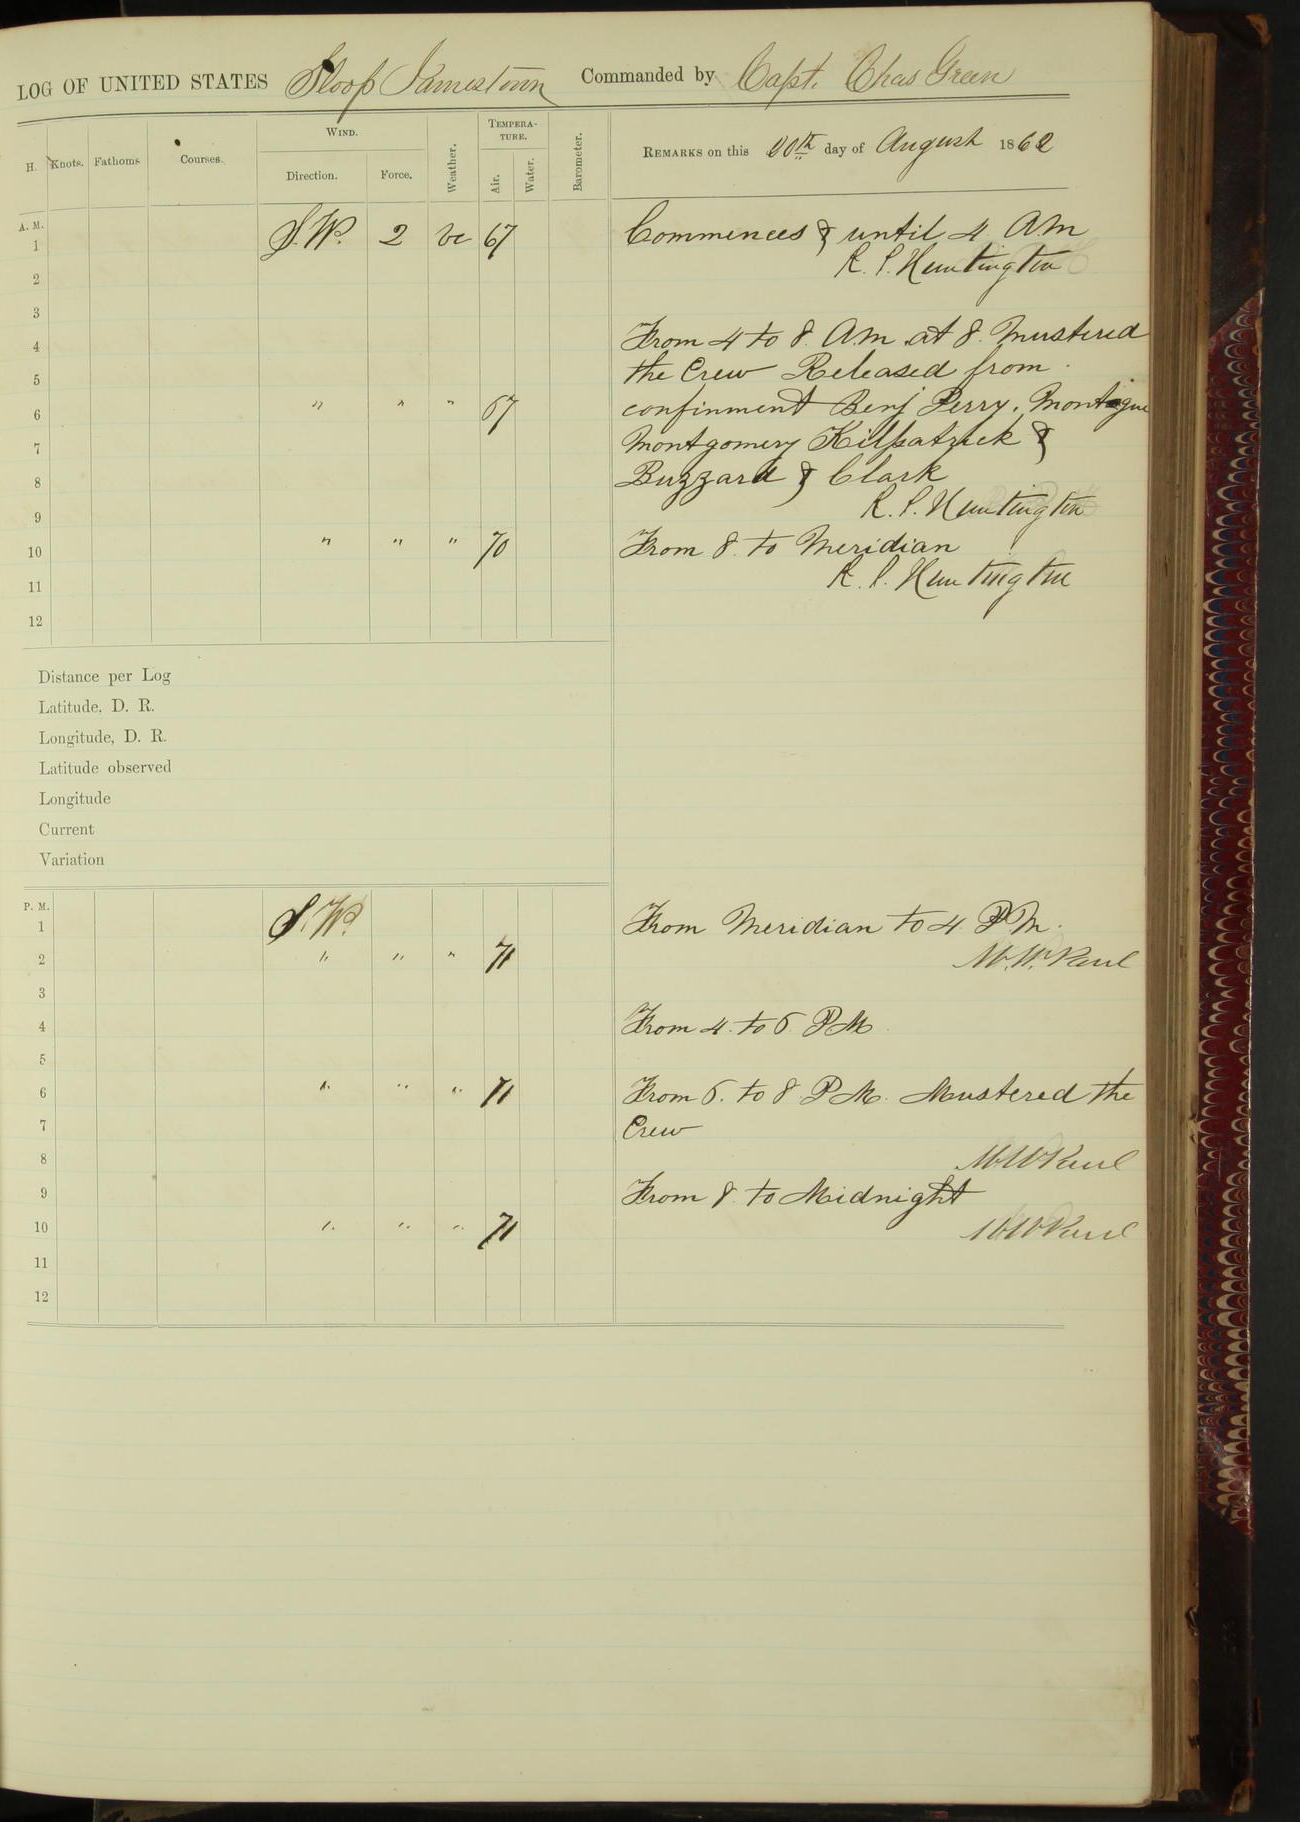 LOG OF UNITED STATES Sloop Jamestown Commanded by Capt. Chas Green
H. Knots. Fathoms Courses. Wind. Direction. Force. Weather. Tempera-ture. Air. Water. Barometer. Remarks on this 20th day of August 1862
A. M.
1 S.W. 2 bc 67 Commences & until 4 AM
R. P. Huntington
2
3
4 From 4 to 8 A.M. at 8 Mustered
5 the Crew Released from
6 " " " 67 confinment Benj Perry. Montague
7 Montgomery Kilpatrick &
8 Buzzard & Clark
9 R. P. Huntington
10 " " " 70 From 8 to Meridian
11 R. P. Huntington
12
Distance per Log
Latitude, D. R.
Longitude, D. R.
Latitude observed
Longitude
Current
Variation
P. M.
1 S.W. From Meridian to 4 PM.
2 " " " 71 M.W. Paul
3
4 From 4 to 6 PM
5
6 " " " 71 From 6 to 8 PM. Mustered the
7 Crew
8 M W Paul
9 From 8 to Midnight
10 " " " 71 M W Paul
11
12